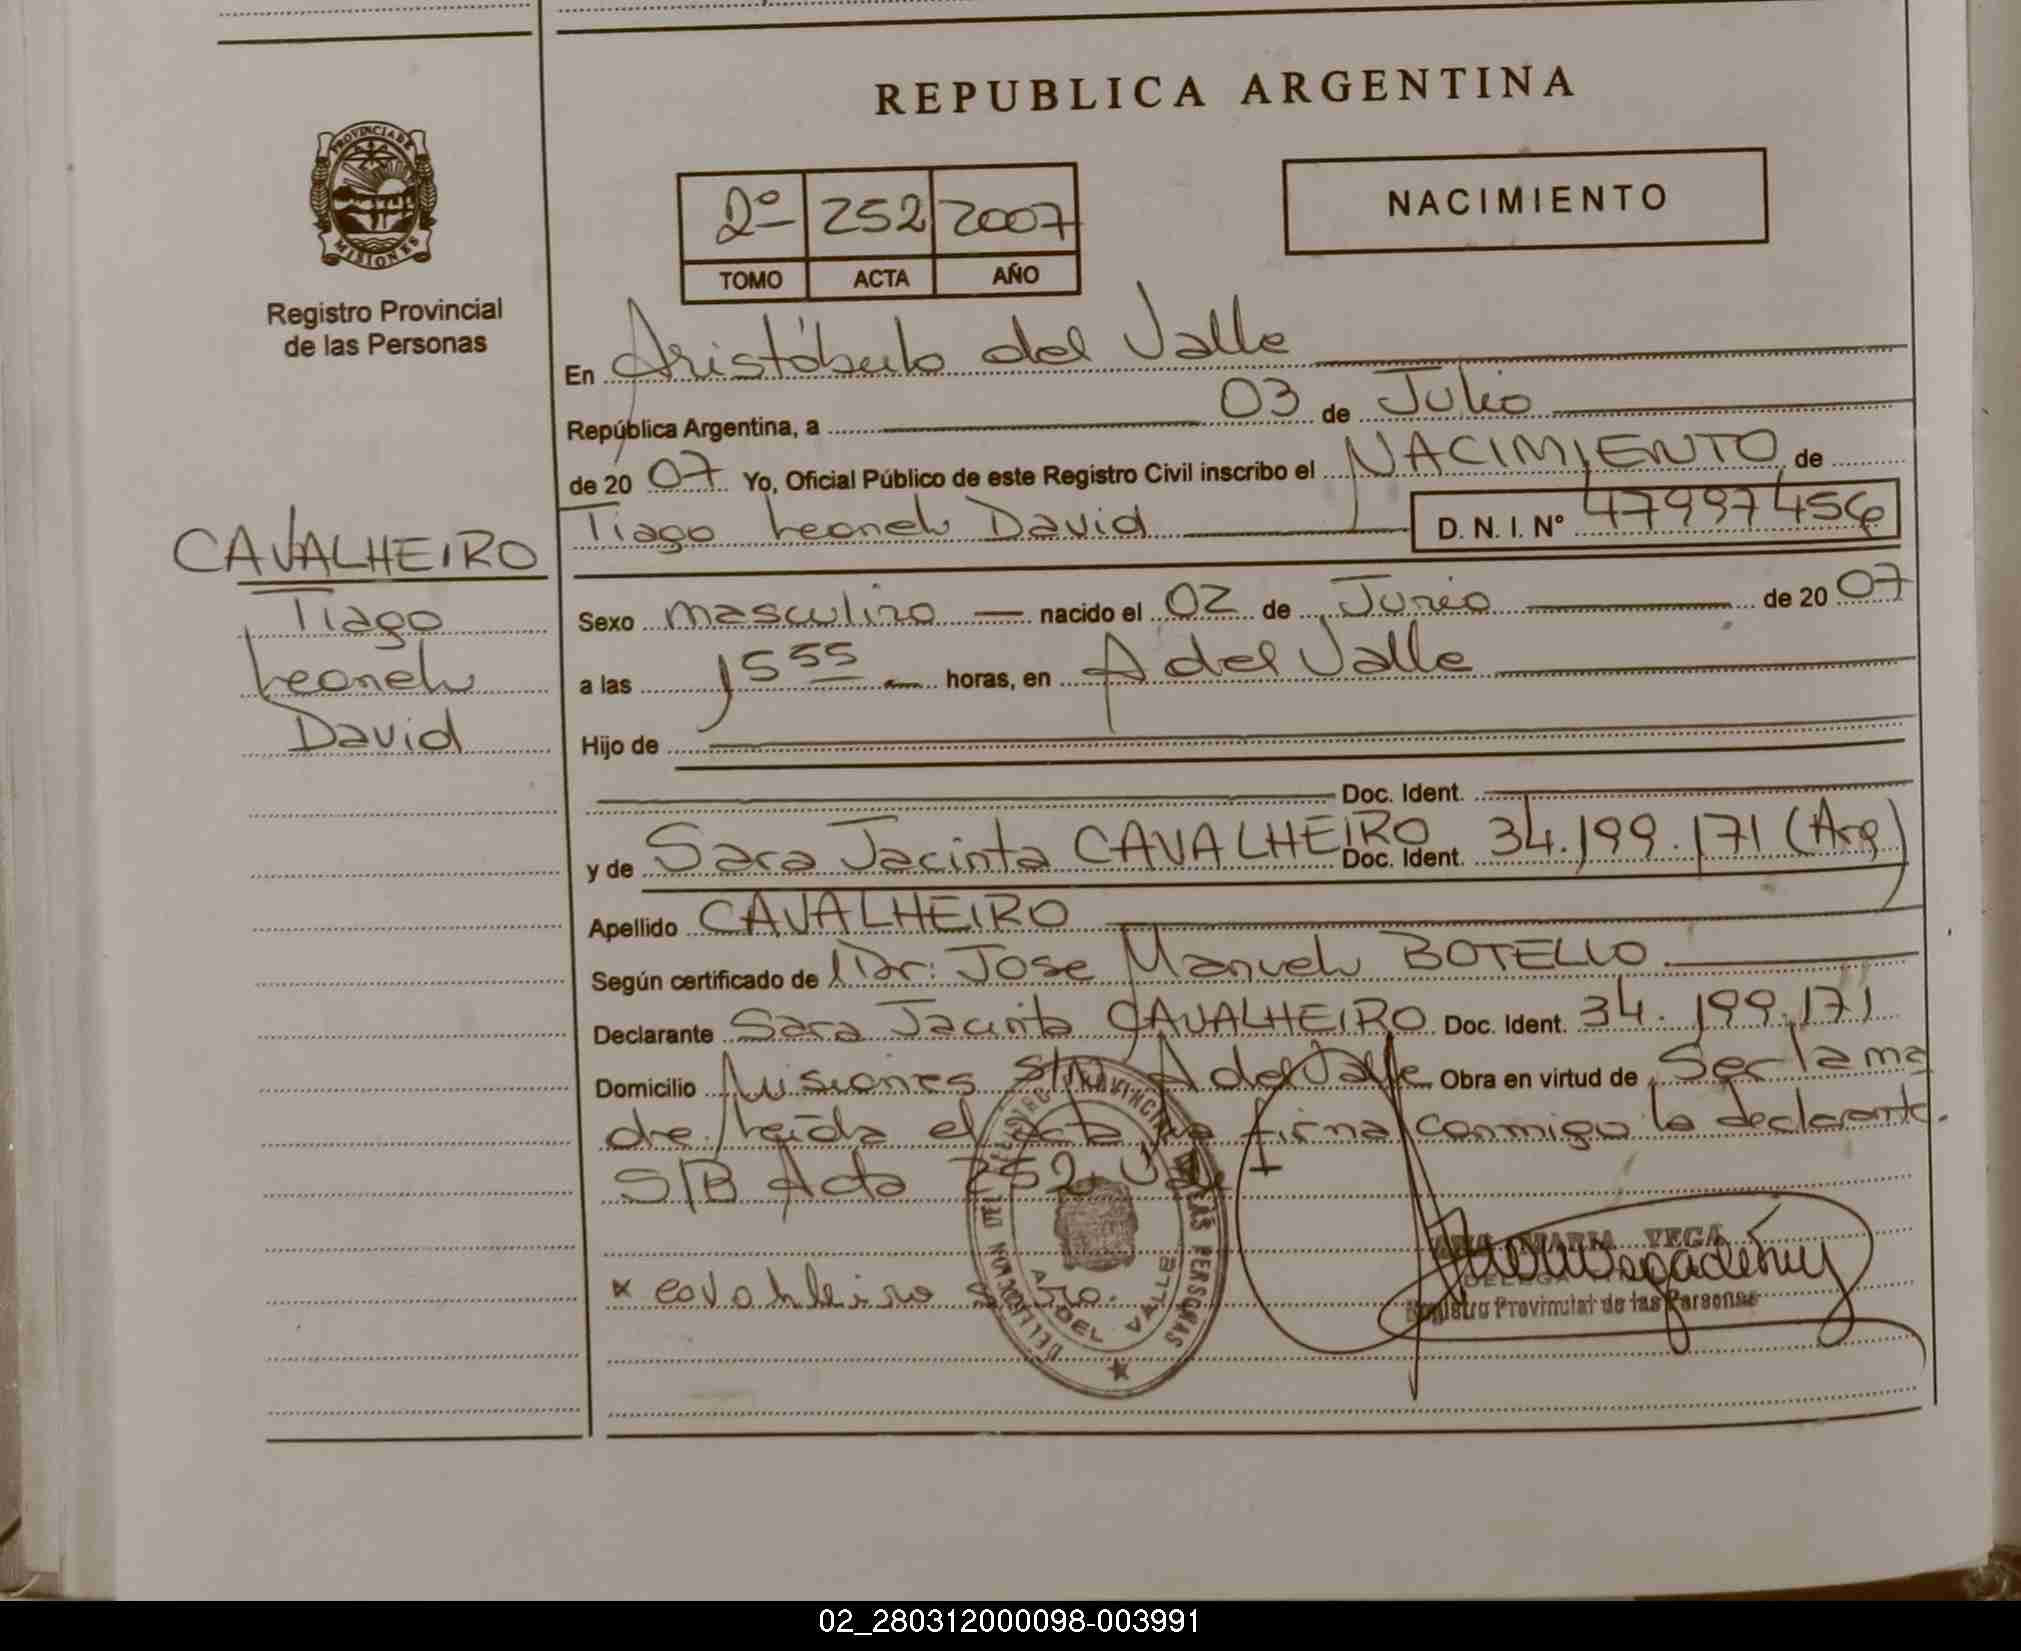 REPUBLICA ARGENTINA
PROVINCIA DE MISIONES
Registro Provincial
de las Personas
2º 252 2007
TOMO ACTA AÑO
NACIMIENTO
En Aristóbulo del Valle
República Argentina, a 03 de Julio
de 20 07 Yo, Oficial Público de este Registro Civil inscribo el NACIMIENTO de
Tiago Leonel David D. N. I. Nº 47997456
CAVALHEIRO
Tiago
Leonel
David
Sexo masculino nacido el 02 de Junio de 20 07
a las 15 55 horas, en A del Valle
Hijo de
Doc. Ident.
y de Sara Jacinta CAVALHEIRO Doc. Ident. 34.199.171 (Arg)
Apellido CAVALHEIRO
Según certificado de Dr. Jose Manuel BOTELLO
Declarante Sara Jacinta CAVALHEIRO Doc. Ident. 34.199.171
Domicilio Misiones S/N A del Valle Obra en virtud de Ser la ma
dre. Leída el acta la firma conmigo la declarante.
S/B Acta 252. Vale
x cavahleiro
A. DEL VALLE
ANA MARIA VEGA
DELEGADA
Registro Provincial de las Personas
02_280312000098-003991